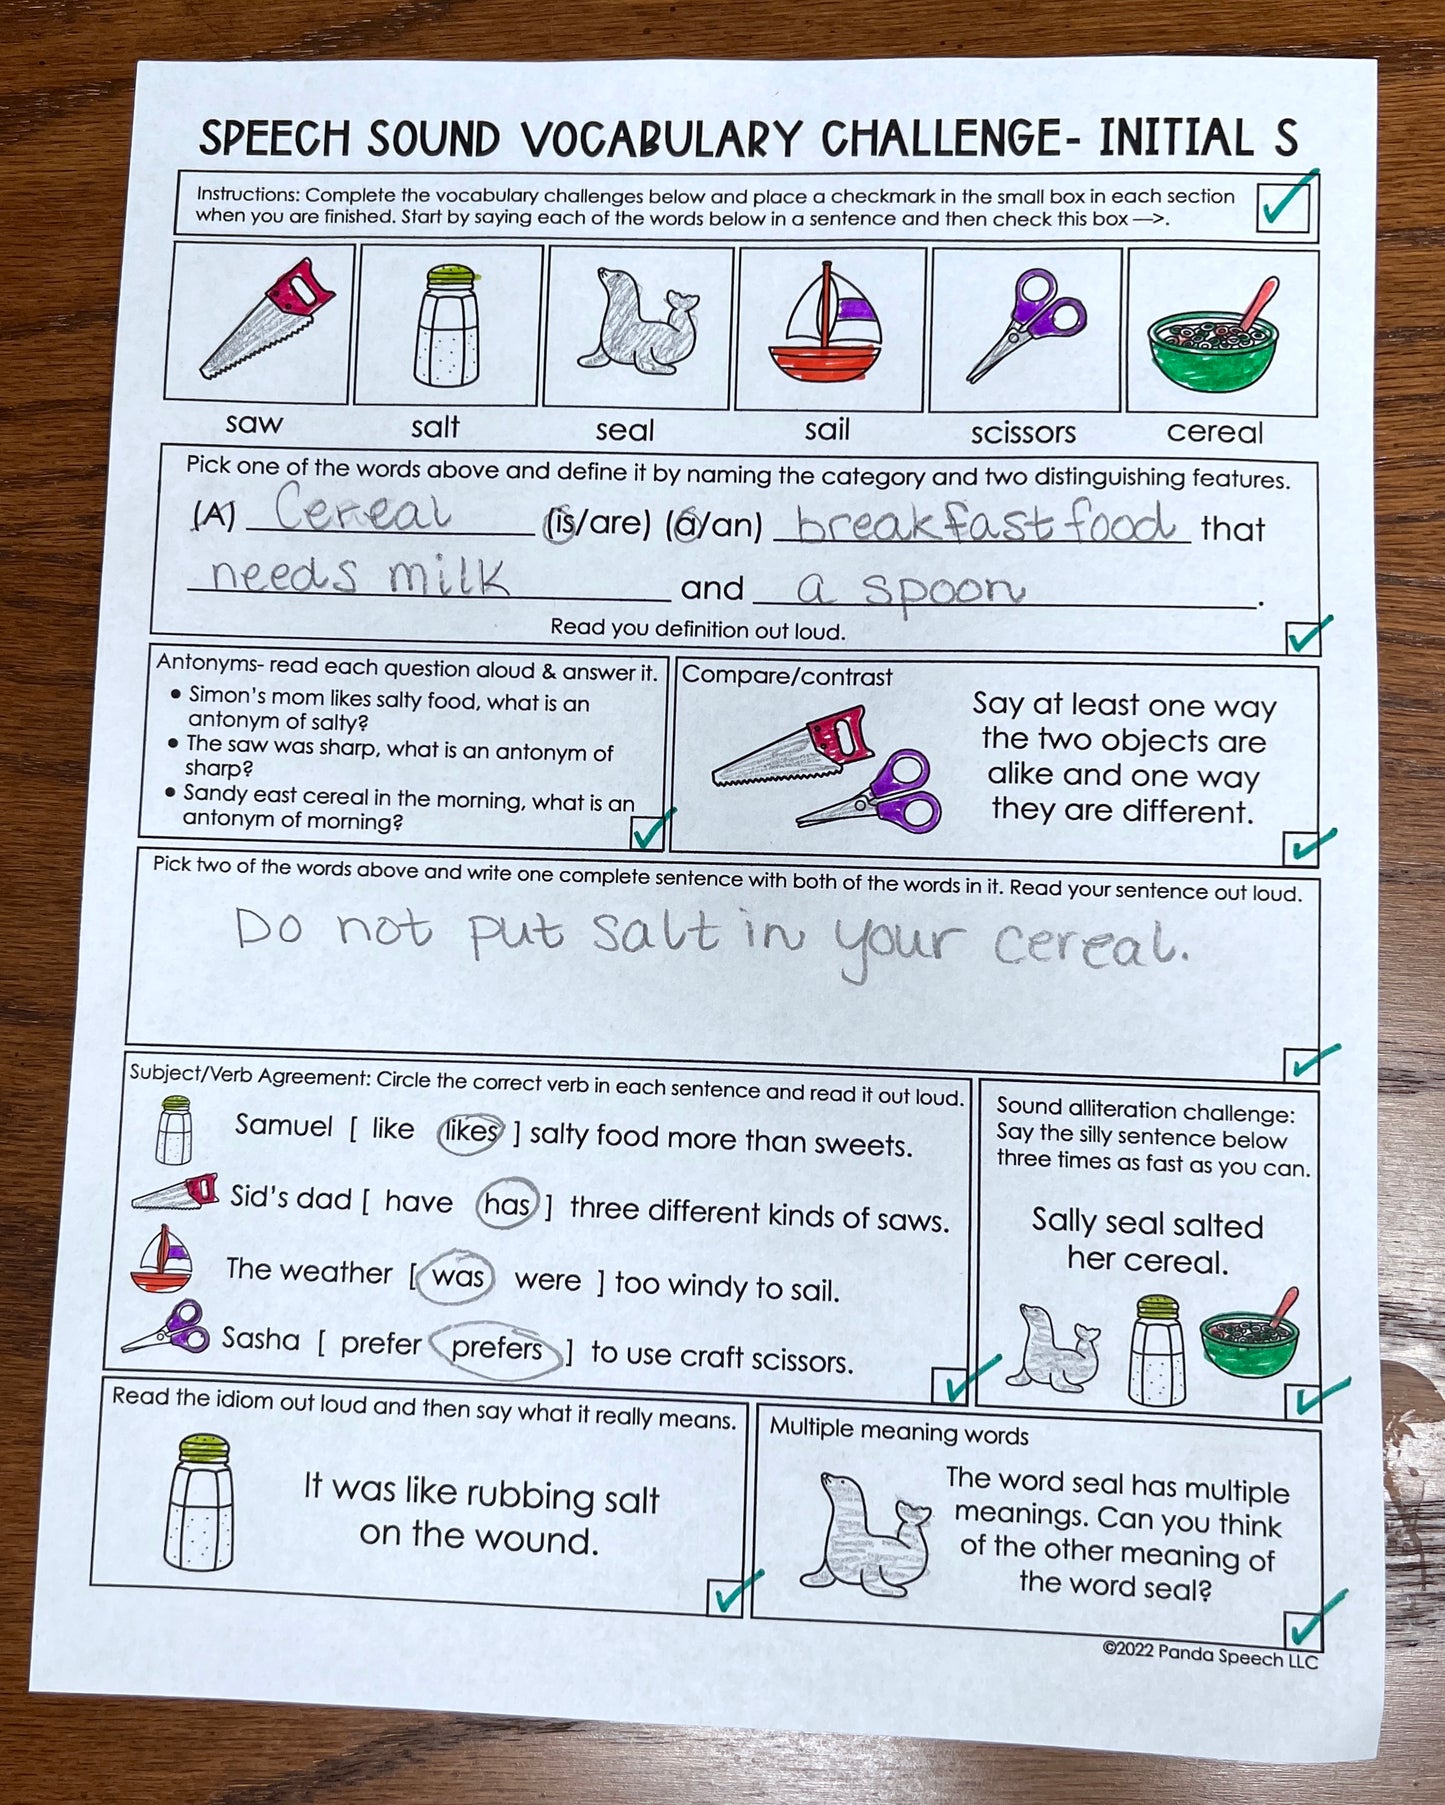 SPEECH SOUND VOCABULARY CHALLENGE- INITIAL S
Instructions: Complete the vocabulary challenges below and place a checkmark in the small box in each section
when you are finished. Start by saying each of the words below in a sentence and then check this box —>.
saw salt seal sail scissors cereal
Pick one of the words above and define it by naming the category and two distinguishing features.
(A) Cereal (is/are) (a/an) breakfast food that
needs milk and a spoon.
Read you definition out loud.
Antonyms- read each question aloud & answer it.
• Simon's mom likes salty food, what is an
antonym of salty?
• The saw was sharp, what is an antonym of
sharp?
• Sandy east cereal in the morning, what is an
antonym of morning?
Compare/contrast
Say at least one way
the two objects are
alike and one way
they are different.
Pick two of the words above and write one complete sentence with both of the words in it. Read your sentence out loud.
Do not put salt in your cereal.
Subject/Verb Agreement: Circle the correct verb in each sentence and read it out loud.
Samuel [ like likes ] salty food more than sweets.
Sid's dad [ have has ] three different kinds of saws.
The weather [ was were ] too windy to sail.
Sasha [ prefer prefers ] to use craft scissors.
Sound alliteration challenge:
Say the silly sentence below
three times as fast as you can.
Sally seal salted
her cereal.
Read the idiom out loud and then say what it really means.
It was like rubbing salt
on the wound.
Multiple meaning words
The word seal has multiple
meanings. Can you think
of the other meaning of
the word seal?
©2022 Panda Speech LLC